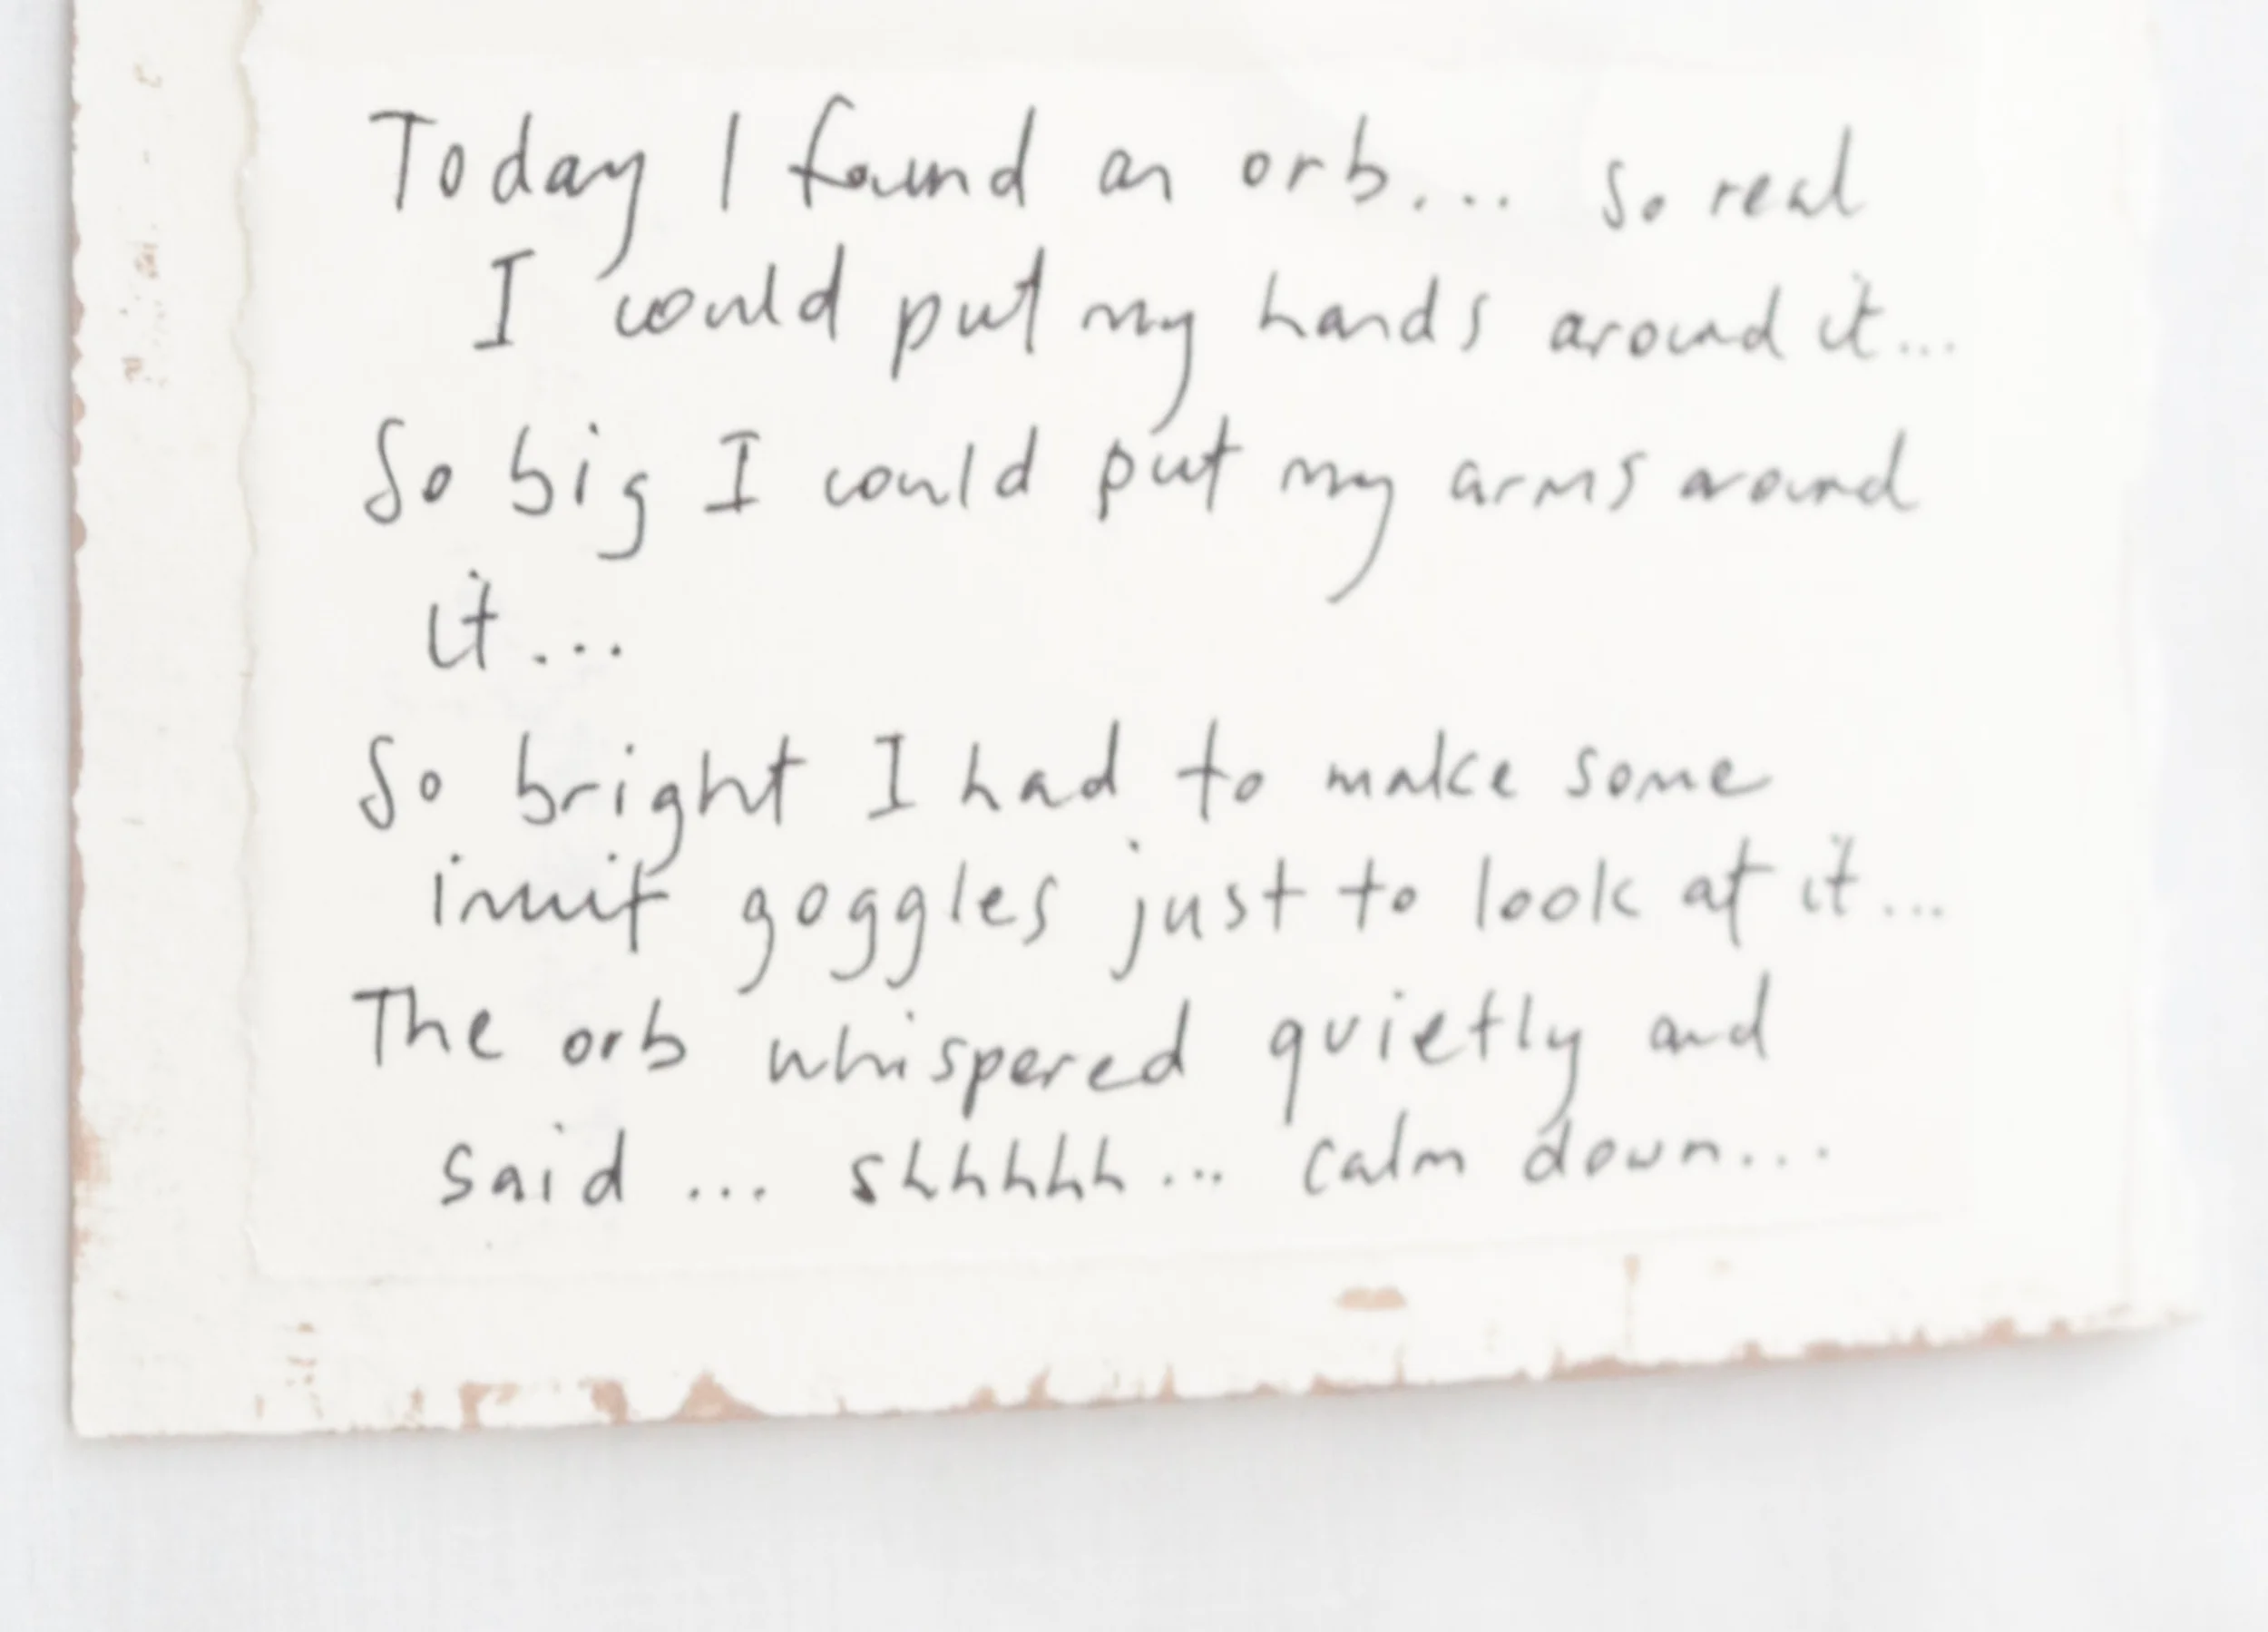 Today I found an orb... so real
I could put my hands around it...
So big I could put my arms around
it...
So bright I had to make some
inuit goggles just to look at it...
The orb whispered quietly and
said ... shhhhh... calm down...